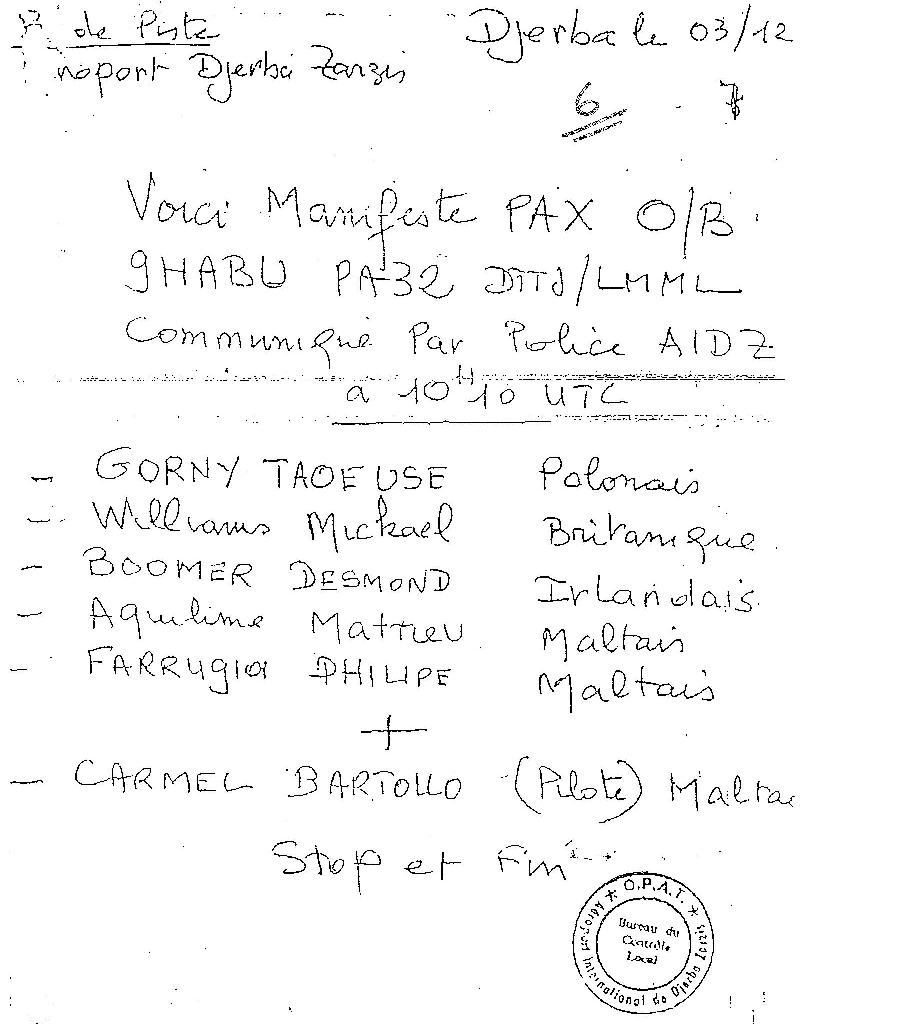 de Piste
Djerba le 03/12
roport Djerba Zarzis
6 7
Voici Manifeste PAX O/B
9HABU PA32 DTTJ/LMML
Communiqué Par Police AIDZ
a 10H10 UTC
- GORNY TAOEUSE Polonais
- Williams Mickael Britanique
- BOOMER DESMOND Irlandais
- Aquilime Matrieu Maltais
- FARRUgia PHILIPE Maltais
+
- CARMEL BARTOLLO (Pilote) Maltai
Stop et Fin
* O.P.A.T. *
Aéroport International de Djerba Zarzis
Bureau du
Contrôle
Local